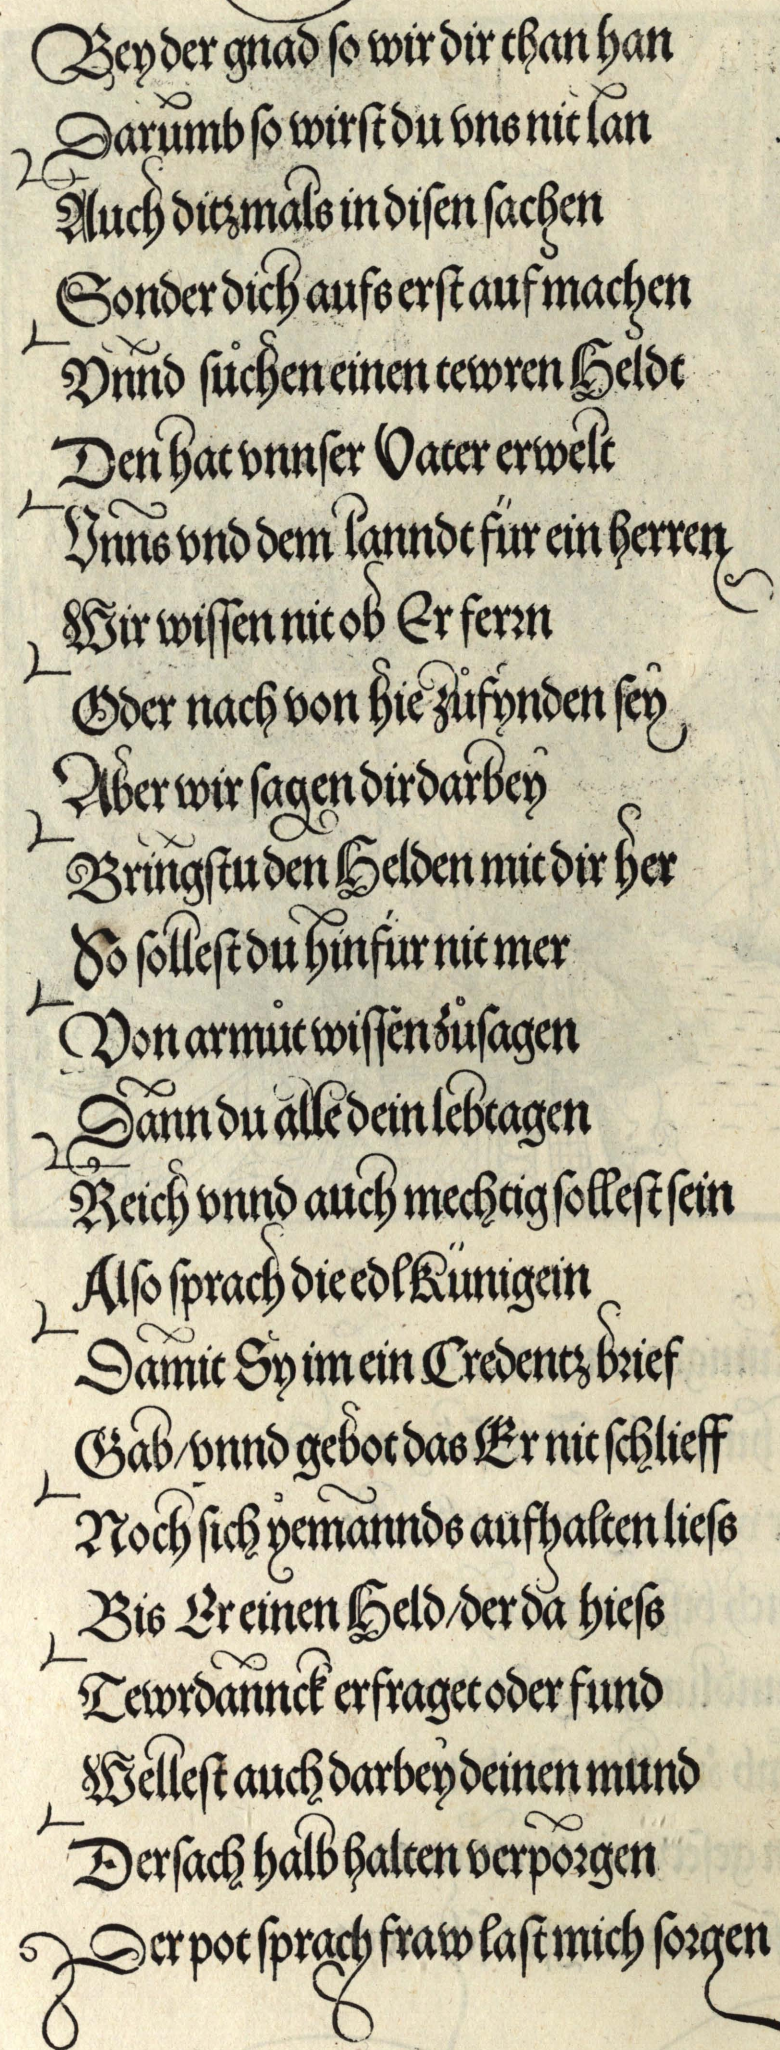 Bey der gnad so wir dir than han
Darumb so wirst du vns nit lan
Auch ditzmals in disen sachen
Sonder dich aufs erst auf machen
Vnnd sůchen einen tewren Heldt
Den hat vnnser Vater erwelt
Vnns vnd dem lanndt für ein herren
Wir wissen nit ob Er ferrn
Oder nach von hie zůfynden sey
Aber wir sagen dir darbey
Bringstu den Helden mit dir her
So sollest du hinfür nit mer
Von armůt wissen zůsagen
Dann du alle dein lebtagen
Reich vnnd auch mechtig sollest sein
Also sprach die edl Künigein
Damit Sy im ein Credentz brief
Gab/vnnd gebot das Er nit schlieff
Noch sich yemannds aufhalten liess
Bis Er einen Held/der da hiess
Tewrdannck erfraget oder fund
Wellest auch darbey deinen mund
Der sach halb halten verporgen
Der pot sprach fraw last mich sorgen